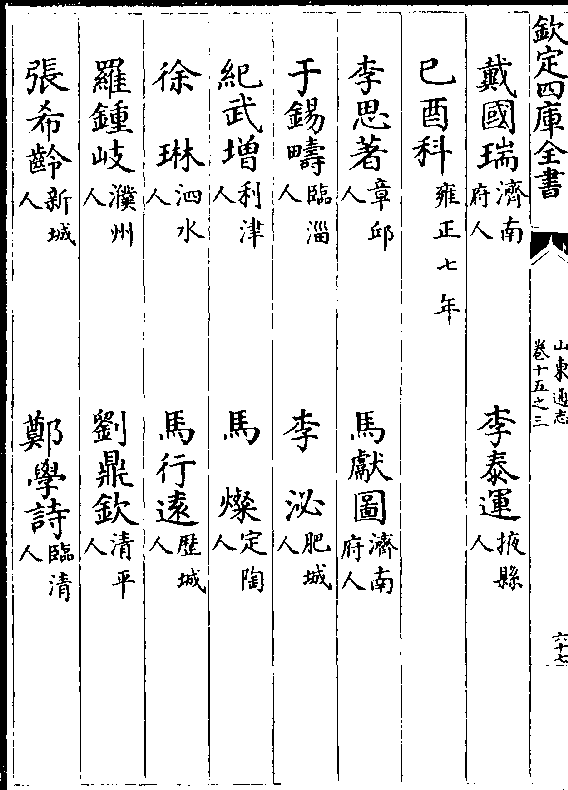 欽定四庫全書
山東通志
卷十五之三
六十七
戴國瑞濟南府人 李泰運掖縣人
己酉科雍正七年
李思著章邱人 馬獻圖濟南府人
于錫疇臨淄人 李泌肥城人
紀武增利津人 馬燦定陶人
徐琳泗水人 馬行遠歷城人
羅鍾岐濮州人 劉鼎欽清平人
張希齡新城人 鄭學詩臨清人